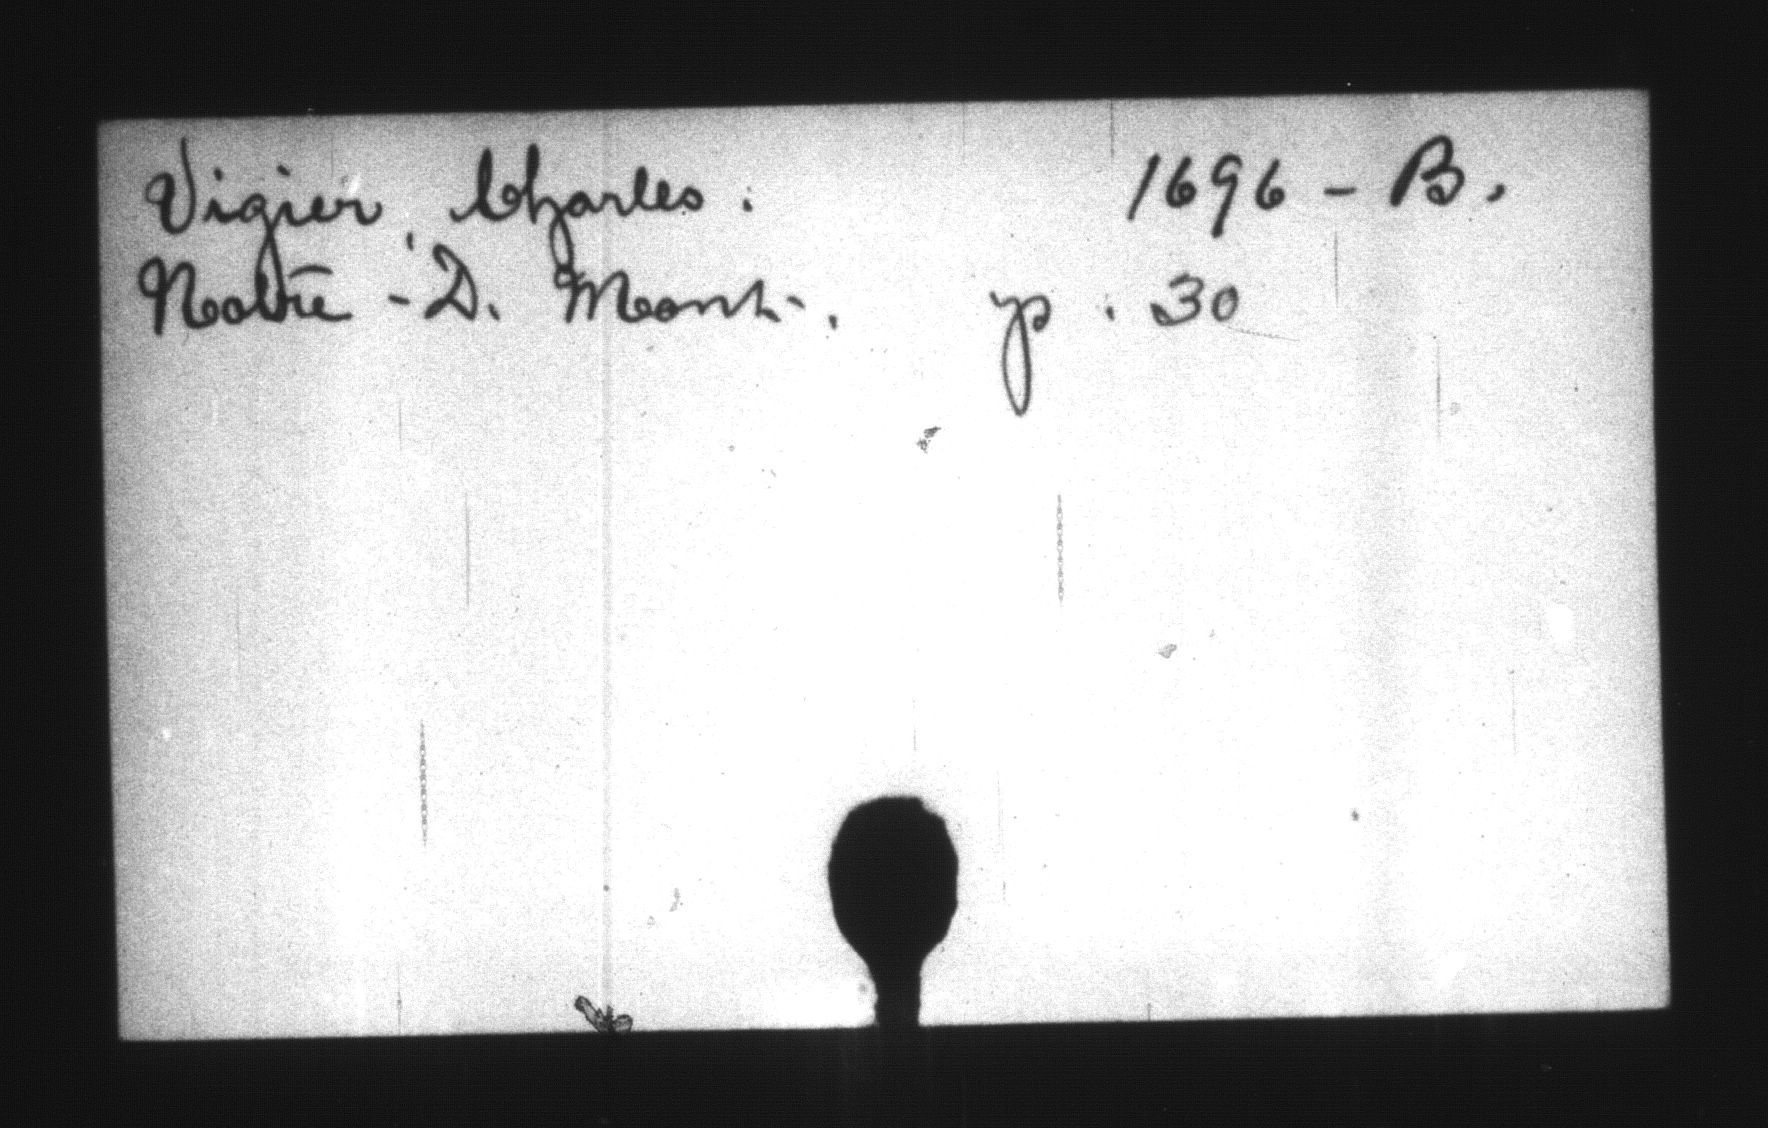 Vigier, Charles. 1696 - B.
Notre - D. Mont. p. 30